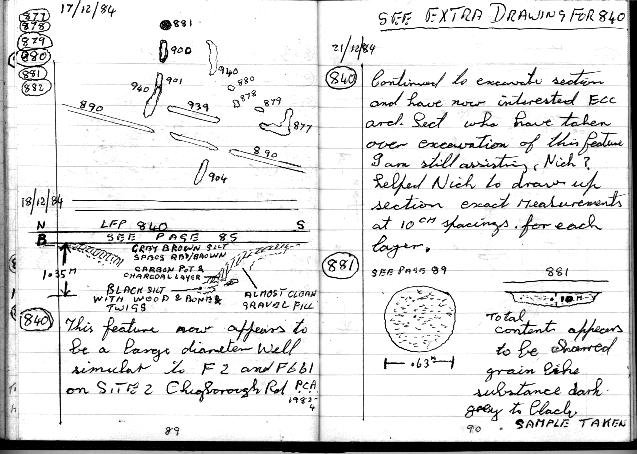 17/12/84
877
878
879
880
881
882
881
900
940
901
940
880
878
879
890
939
877
890
904
18/12/84
N LFP 840 S
B SEE PAGE 85
GREY BROWN SILT
SPECS RED/BROWN
CARBON POT &
CHARCOAL LAYER
1.35M
BLACK SILT
WITH WOOD & BONE &
TWIGS
ALMOST CLEAN
GRAVEL FILL
840
This feature now appears to
be a large diameter well
similar to F2 and F661
on SITE 2 Chigborough Rd PCA
1983-4
89
SEE EXTRA DRAWING FOR 840
21/12/84
840
Continued to excavate section
and have now interested ECC
arch. Sect who have taken
over excavation of this feature
I am still assisting, Nich?
helped Nich to draw up
section exact measurements
at 10CM spacings. for each
layer.
881
SEE PAGE 89
881
10M
.63M
Total
contents appears
to be charred
grain like
substance dark
grey to black
SAMPLE TAKEN
90